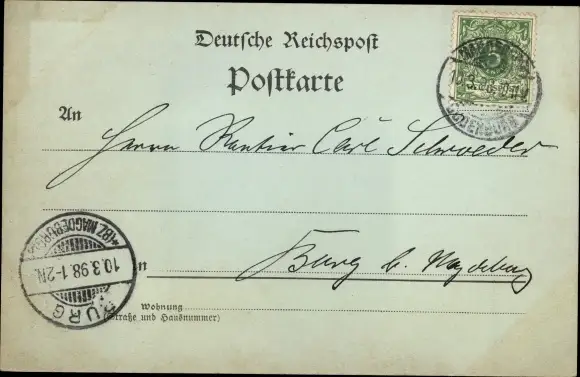 Deutsche Reichspost
Postkarte
An
Herrn Rentier Carl Schroeder
in
Burg b. Magdeburg
Wohnung
(Straße und Hausnummer)
BURG
10.3.98.1-2N.
*(BZ. MAGDEBURG)*
5